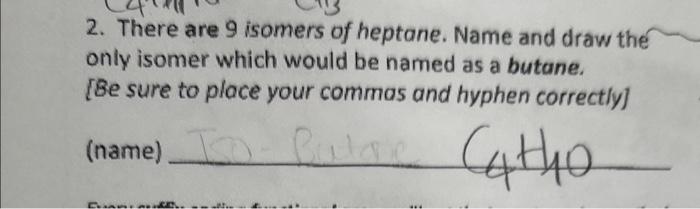 2. There are 9 isomers of heptane. Name and draw the
only isomer which would be named as a butane.
[Be sure to place your commas and hyphen correctly]
(name) Iso-Butane C4H10